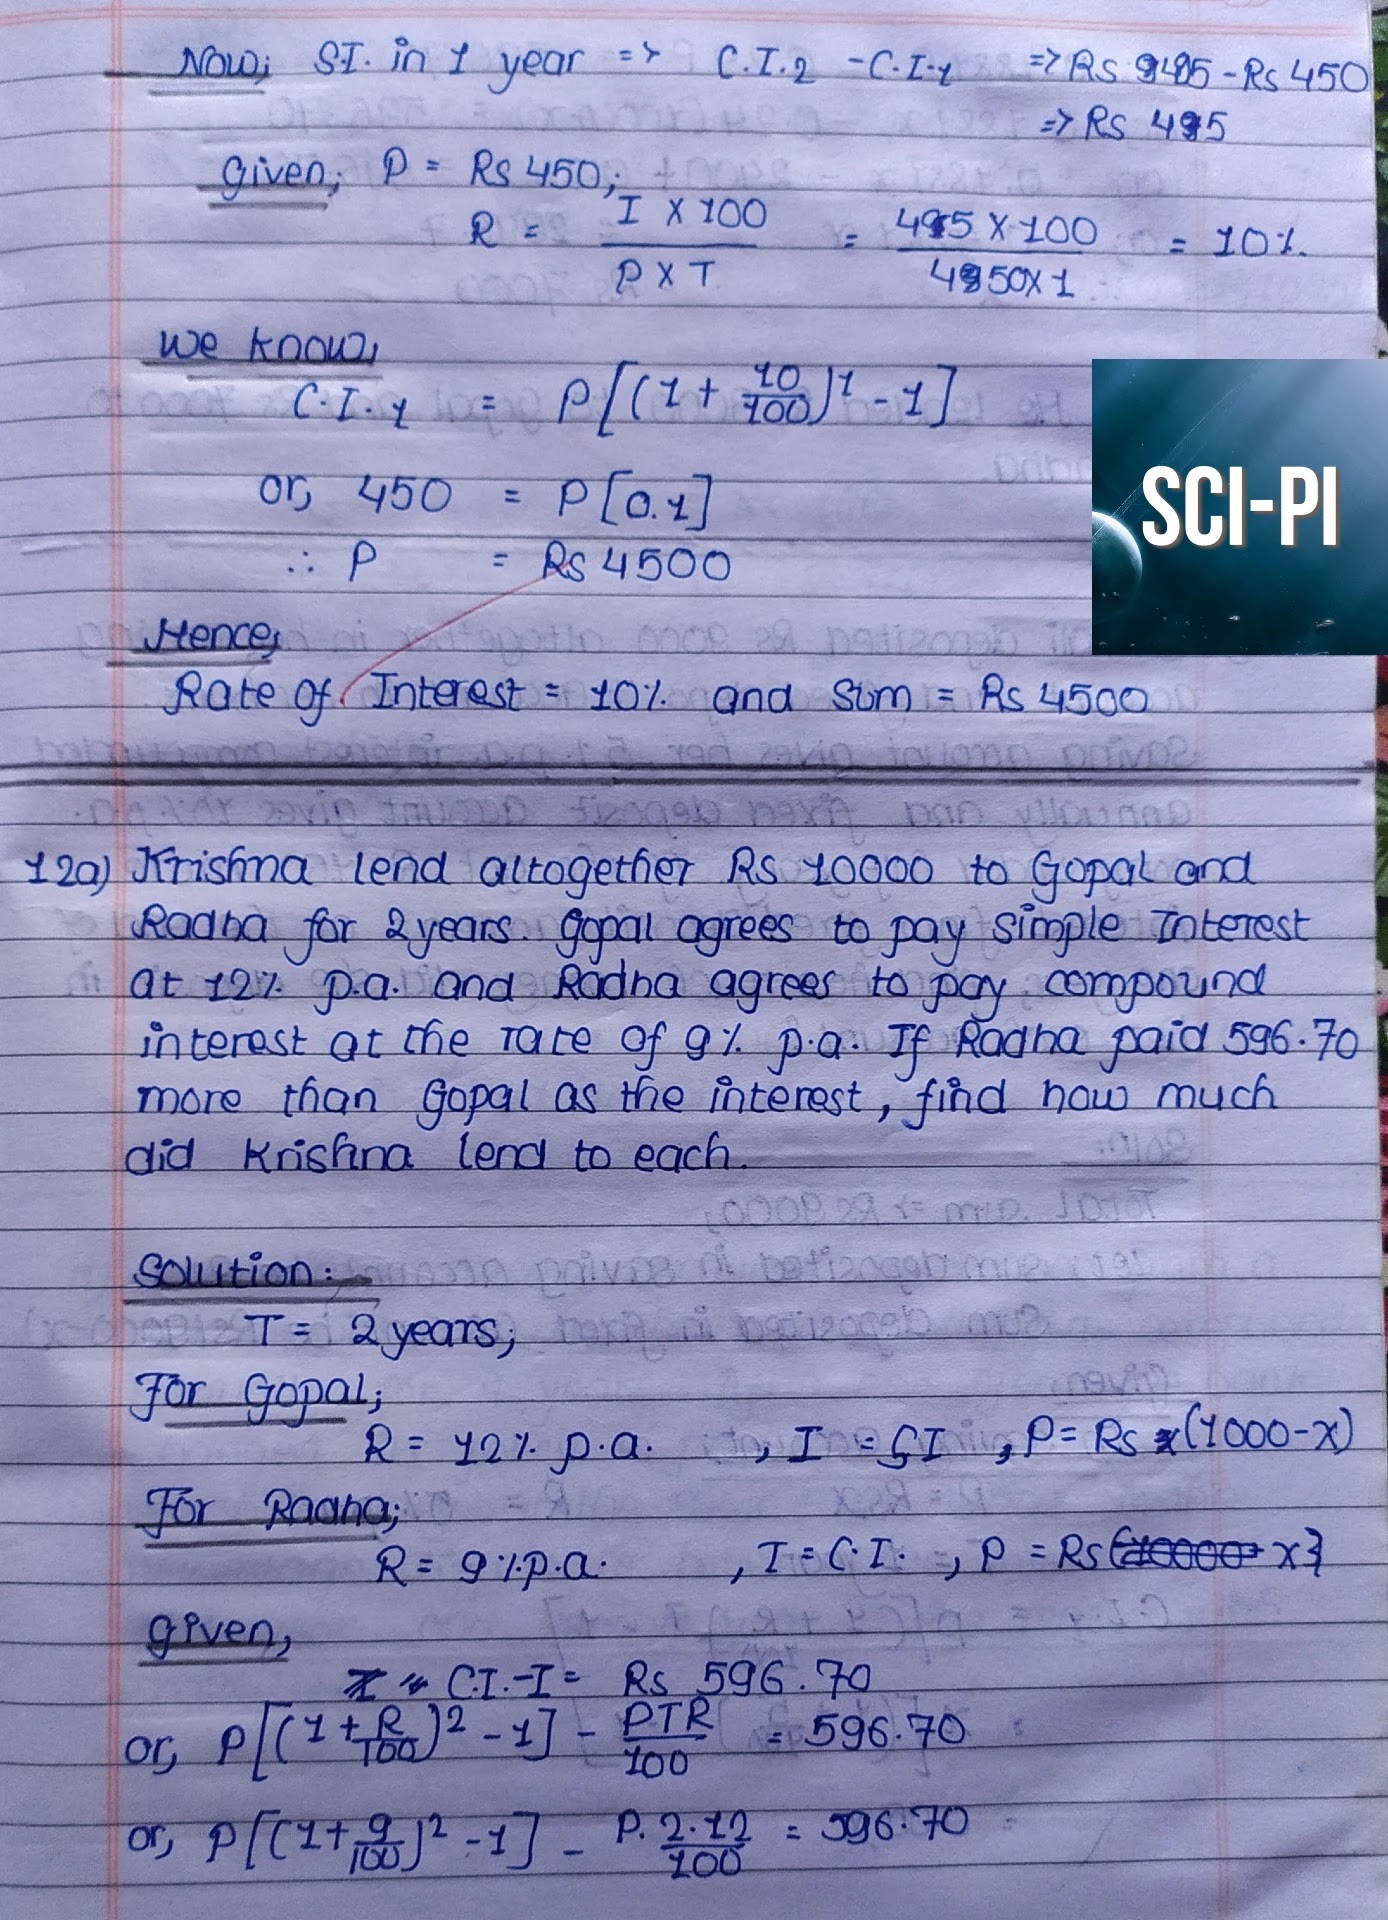 Now; S.I. in 1 year => C.I.2 - C.I.1 => Rs 945 - Rs 450
=> Rs 495
Given; P = Rs 450;
R = I X 100 / P X T = 495 X 100 / 4950 X 1 = 10%.
We know,
C.I.1 = P[(1 + 10/100)^1 - 1]
or, 450 = P[0.1]
∴ P = Rs 4500
Hence,
Rate of Interest = 10% and Sum = Rs 4500
SCI-PI
12a) Krishna lend altogether Rs 10000 to Gopal and
Radha for 2 years. Gopal agrees to pay simple Interest
at 12% p.a. and Radha agrees to pay compound
interest at the rate of 9% p.a. If Radha paid 596.70
more than Gopal as the interest, find how much
did Krishna lend to each.
Solution:-
T = 2 years;
For Gopal;
R = 12% p.a. , I = SI , P = Rs (1000-x)
For Radha;
R = 9% p.a. , I = C.I. , P = Rs x
Given,
C.I. - I = Rs 596.70
or, P[(1 + R/100)^2 - 1] - PTR/100 = 596.70
or, P[(1 + 9/100)^2 - 1] - P. 2.12/100 = 596.70